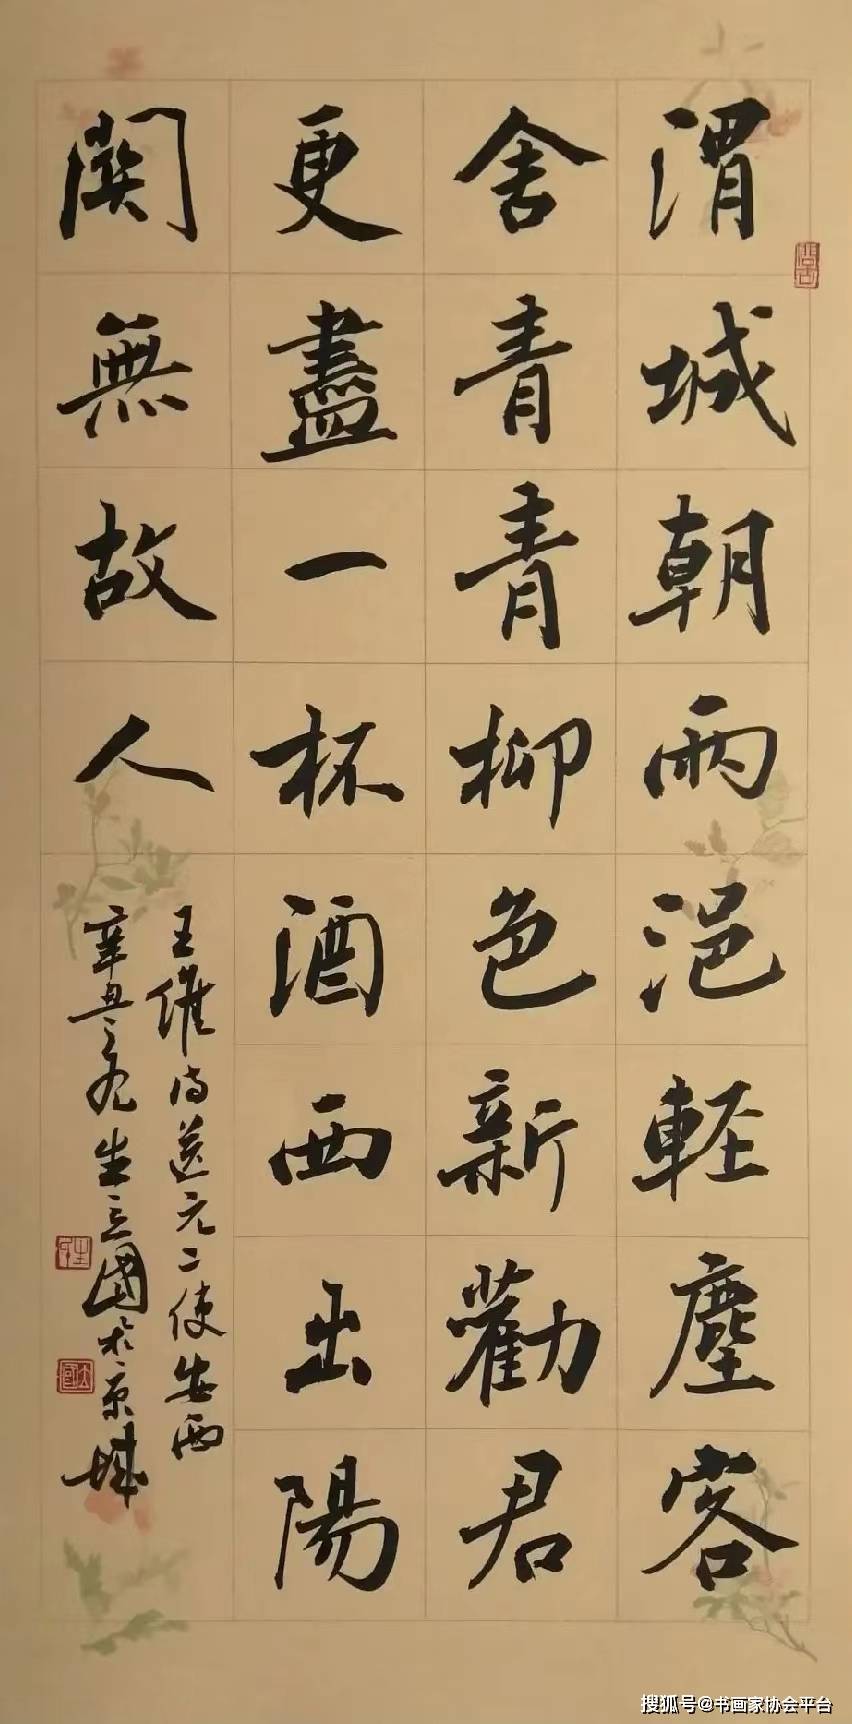 渭城朝雨浥軽塵客
舍青青柳色新勸君
更盡一杯酒西出陽
関無故人
王維詩送元二使安西
辛丑之九生立國於京城
搜狐号@书画家协会平台